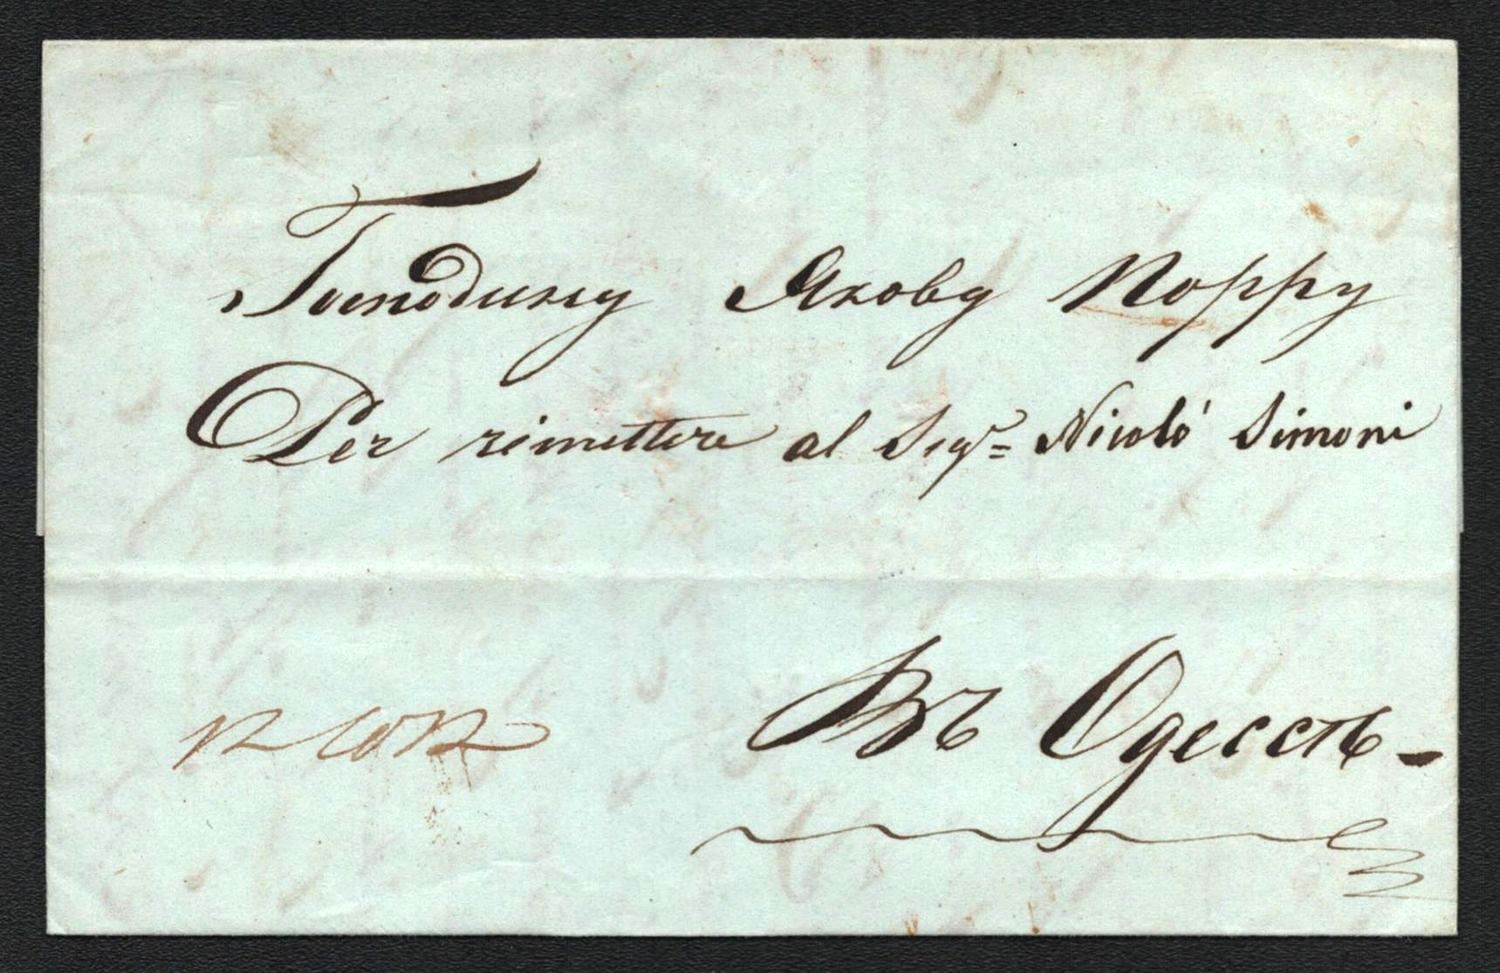 Господину Якову Порру
Per rimettere al Sigr= Nicoló Simoni
Въ Одессѣ-